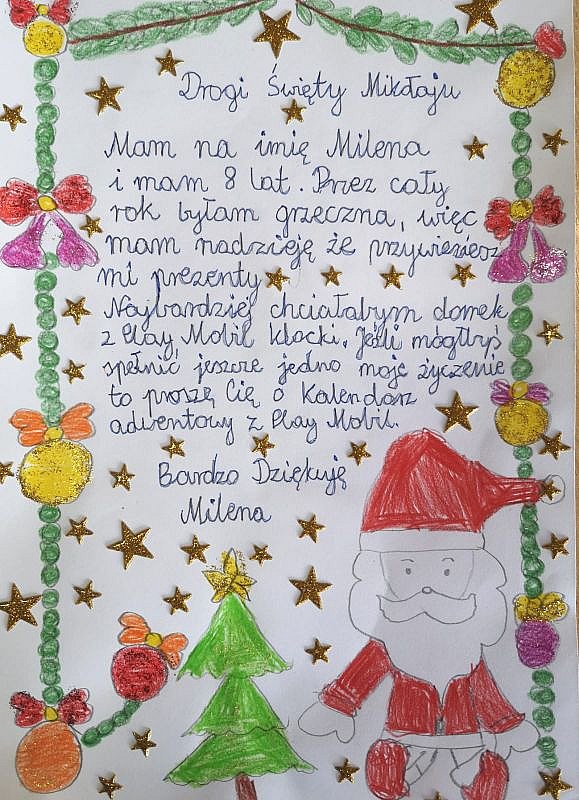 Drogi Święty Mikołaju
Mam na imię Milena
i mam 8 lat. Przez cały
rok byłam grzeczna, więc
mam nadzieję że przywieziesz
mi prezenty
Najbardziej chciałabym domek
z Play Mobil klocki. Jeśli mógłbyś
spełnić jeszcze jedno moje życzenie
to proszę Cię o Kalendarz
adwentowy z Play Mobil.
Bardzo Dziękuję
Milena